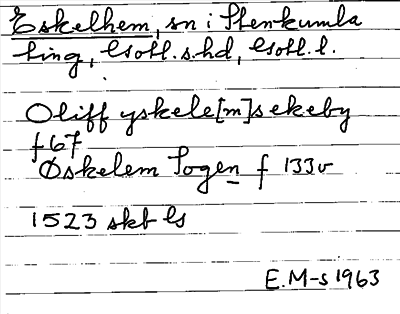 Eskelhem, sn i Stenkumla
ting, Gotl. s. hd, Gotl. l.
Oliff yskele[m]s ekeby
f 67
Øskelem Sogen f 133v
1523 skb ls
E.M-s 1963